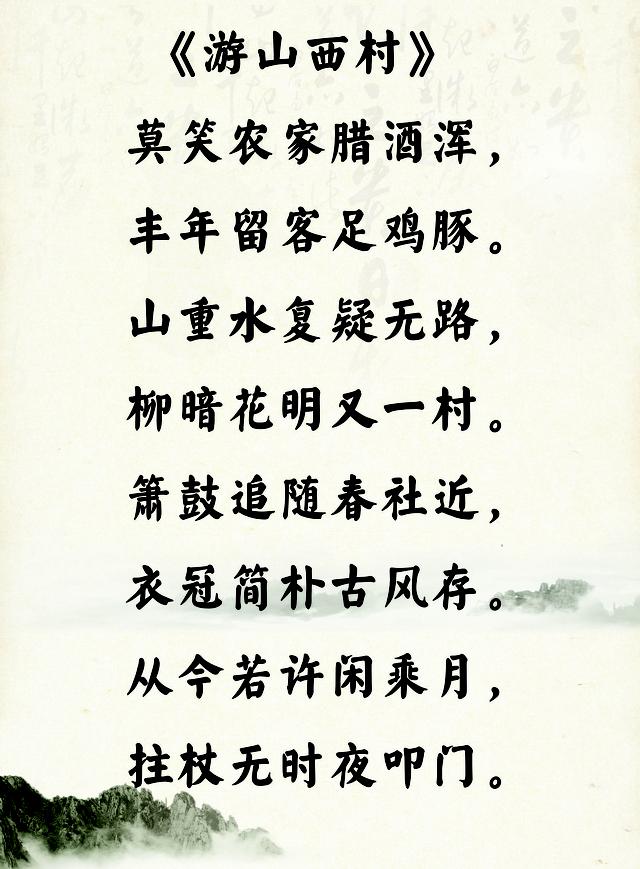 《游山西村》
莫笑农家腊酒浑，
丰年留客足鸡豚。
山重水复疑无路，
柳暗花明又一村。
箫鼓追随春社近，
衣冠简朴古风存。
从今若许闲乘月，
拄杖无时夜叩门。